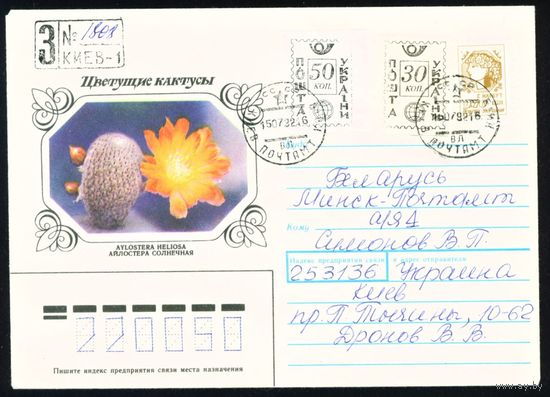 З № 1801
КИЕВ-1
Цветущие кактусы
AYLOSTERA HELIOSA
АЙЛОСТЕРА СОЛНЕЧНАЯ
220050
Пишите индекс предприятия связи места назначения
ПОШТА 50 КОП. УКРАЇНИ
ПОШТА 30 КОП. УКРАЇНИ
150792
ПОЧТАМТ
ВЛ
150792
ПОЧТАМТ
ВЛ
Беларусь
Минск-Почтамт
Кому а/я
Симонов В.П.
Индекс предприятия связи и адрес отправителя
253136 Украина
Киев
пр. П. Тычины, 10-62
Дронов В.В.
www.ay.by